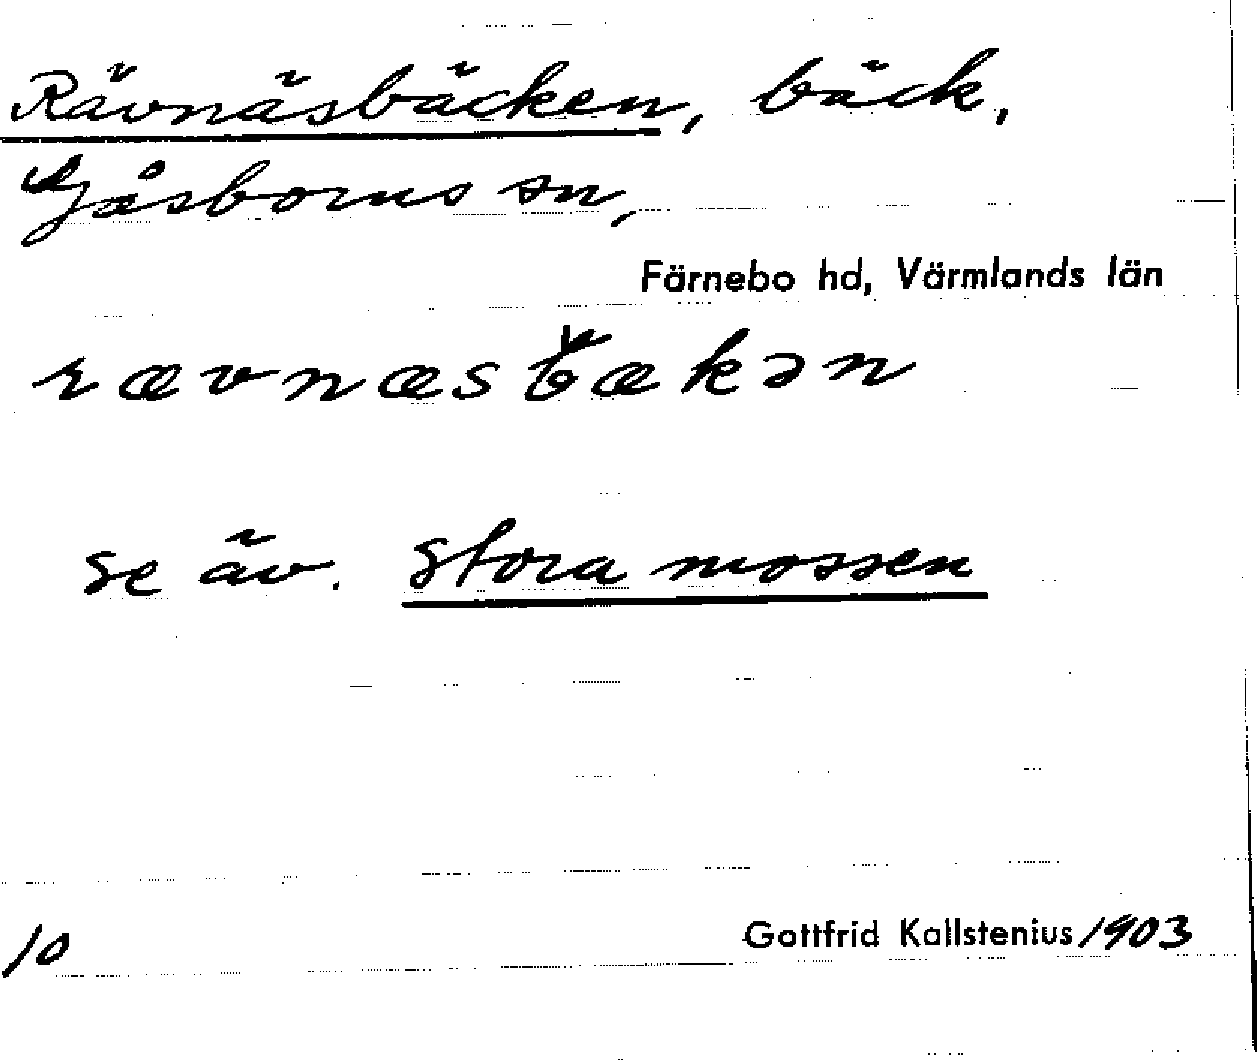 Rävnäsbäcken, bäck,
Gåsborns sn,
Färnebo hd, Värmlands län
rævnæsb̌ækən
se äv. Stora mossen
10
Gottfrid Kallstenius 1903